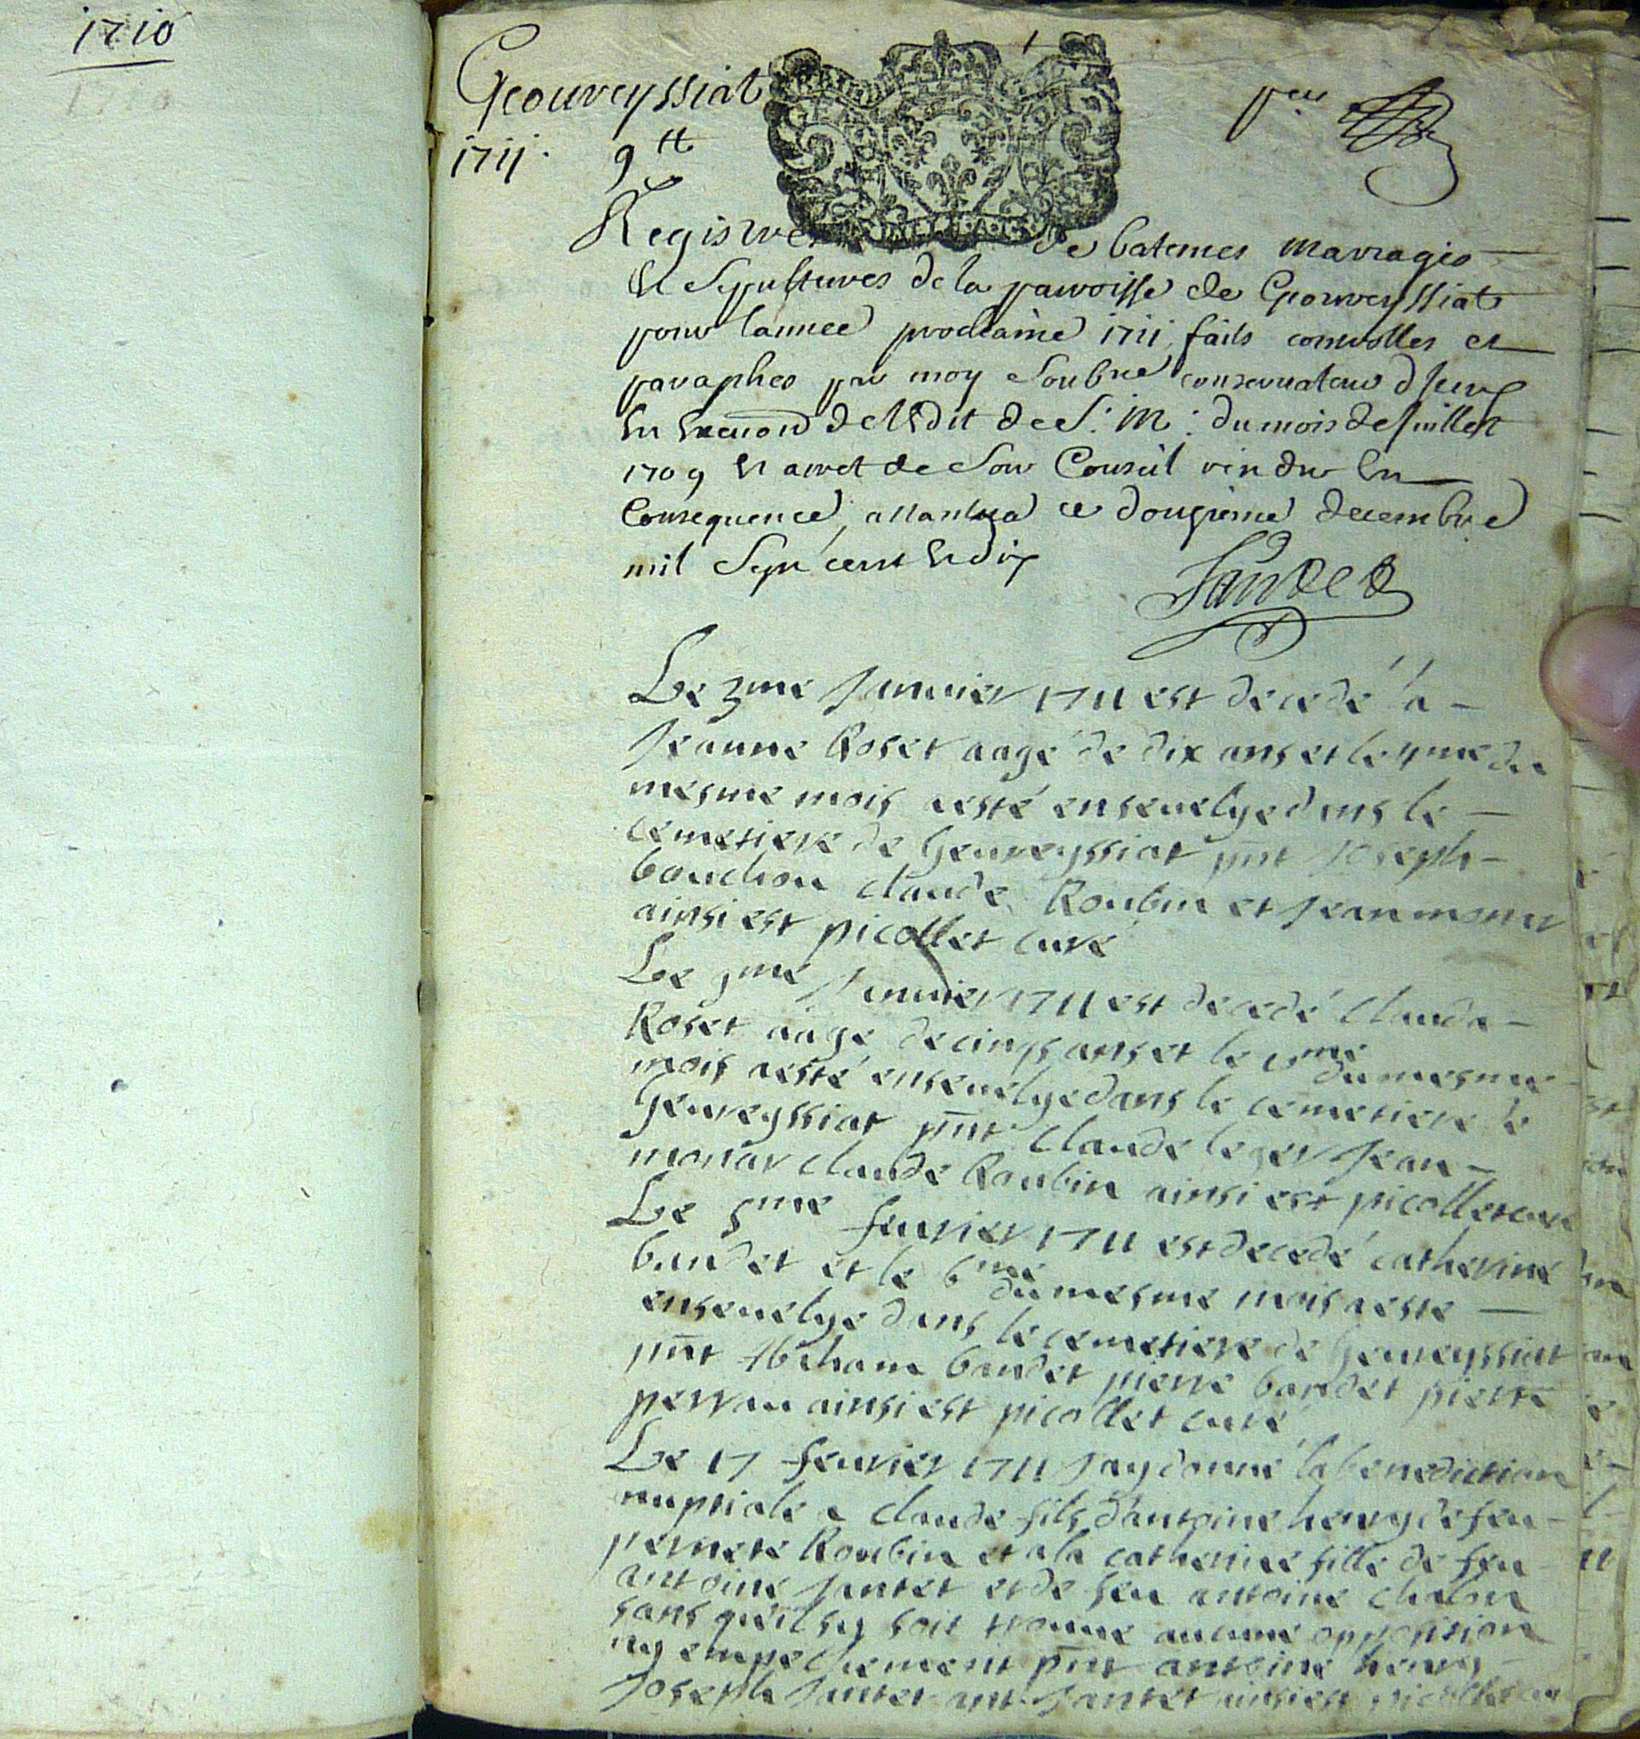 1710
Geouveyssiat
1711. 9 tt
Registre de batemes mariages
Et Sepultures de la parroisse de Geouveyssiat
pour lannee prochaine 1711 faits cottes et
paraphes par moy Soubne conservateur
En Execution de lEdit de S. M. du mois de juillet
1709 Et arret de Son Conseil rendu En
Consequence, a Nantua ce douzieme decembre
mil Sept cent Et dix
Le 3me Janvier 1711 est decedé la
Jeanne Roset aagé de dix ans et le 4me du
mesme mois aesté ensevelye dans le
cemetiere de Geuveyssiat pnt Joseph
bouchon claude Roubin et Jean monar
ainsi est picollet curé
Le 9me Janvier 1711 est decedé Clauda
Roset aagé de cinq ans et le me du mesme
mois aesté ensevelye dans le cemetiere de
Geuveyssiat pnt Claude leger Jean
monar claude Roubin ainsi est picollet curé
Le 5me fevrier 1711 est decedé catherine
baudet et le 6me du mesme mois aeste
ensevelye dans le cemetiere de Geuveyssiat
pnt baudet pierre baudet pierre
perran ainsi est picollet curé
Le 17 fevrier 1711 Jay donné la benediction
nuptiale a claude fils d'antoine henry de feu
pernete Roubin et a la catherine fille de feu
antoine Jantet et de feu antoine chalon
sans qu'il sy soit trouvé aucune opposition
ny empechement pnt antoine henry
Joseph Jantet ant Jantet ainsi est picollet